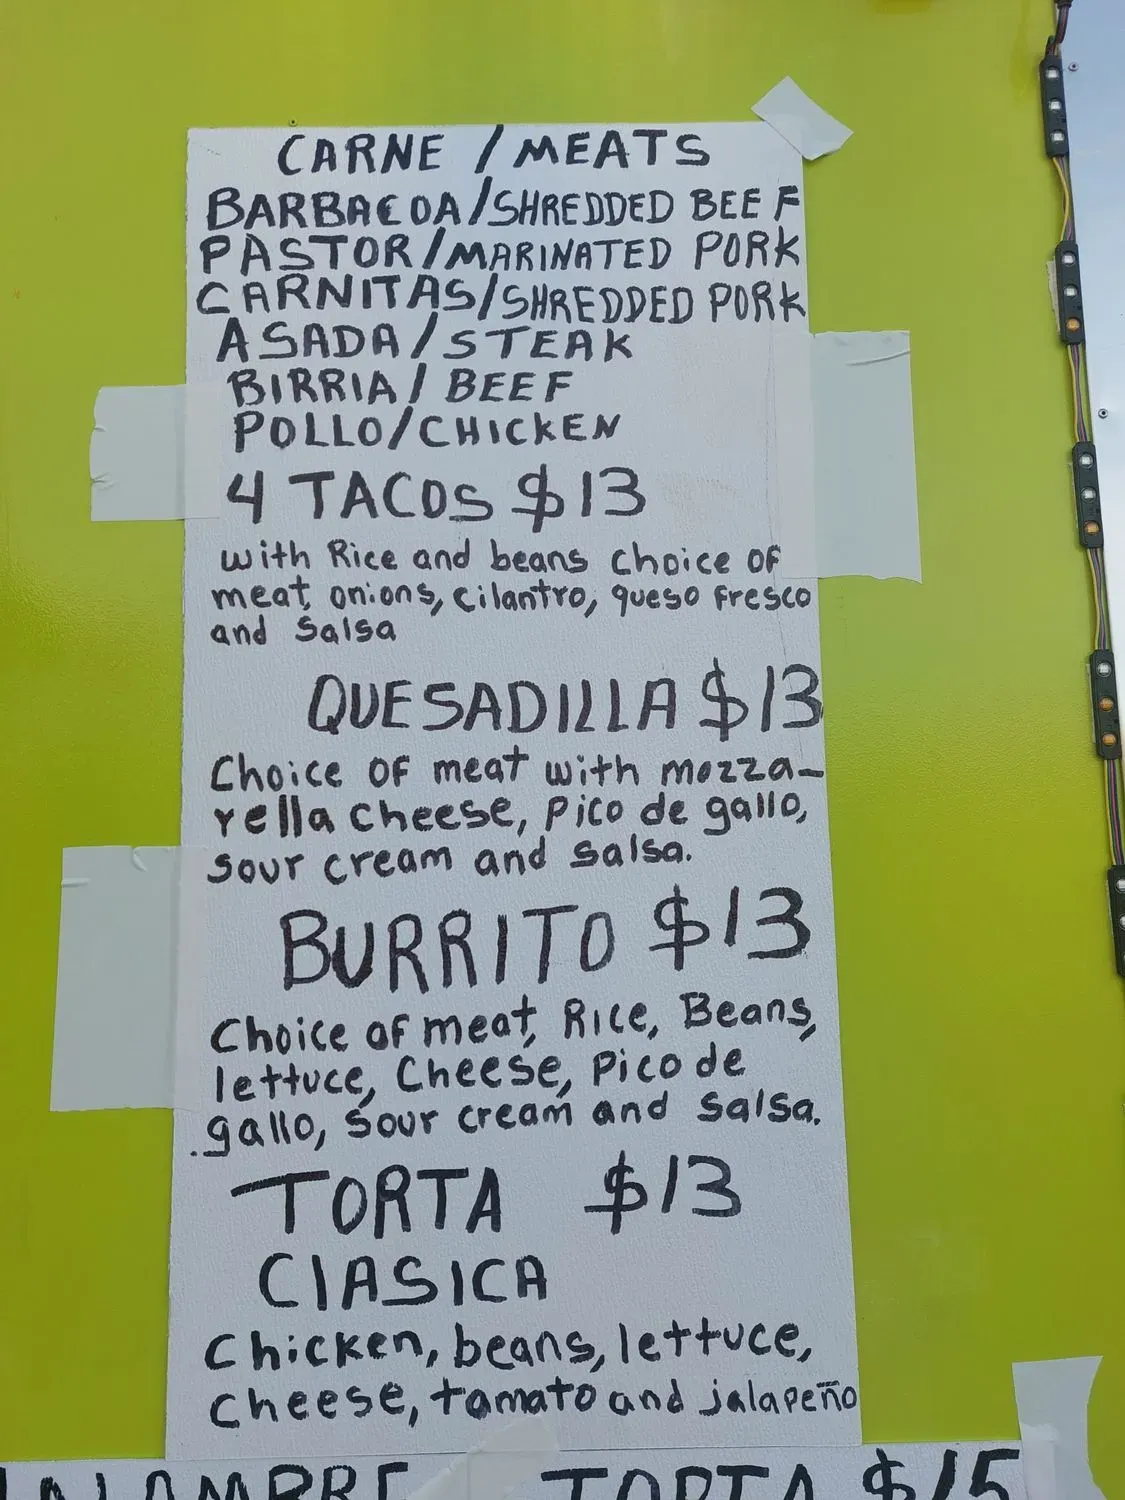 CARNE / MEATS
BARBACOA/SHREDDED BEEF
PASTOR/MARINATED PORK
CARNITAS/SHREDDED PORK
ASADA/STEAK
BIRRIA/ BEEF
POLLO/CHICKEN
4 TACOS $13
with Rice and beans choice of
meat, onions, cilantro, queso fresco
and Salsa
QUESADILLA $13
Choice of meat with mozza-
rella cheese, Pico de gallo,
Sour cream and salsa.
BURRITO $13
Choice of meat, Rice, Beans,
lettuce, Cheese, Pico de
gallo, Sour cream and salsa.
TORTA $13
ClASICA
Chicken, beans, lettuce,
Cheese, tamato and jalapeño
TORTA $15